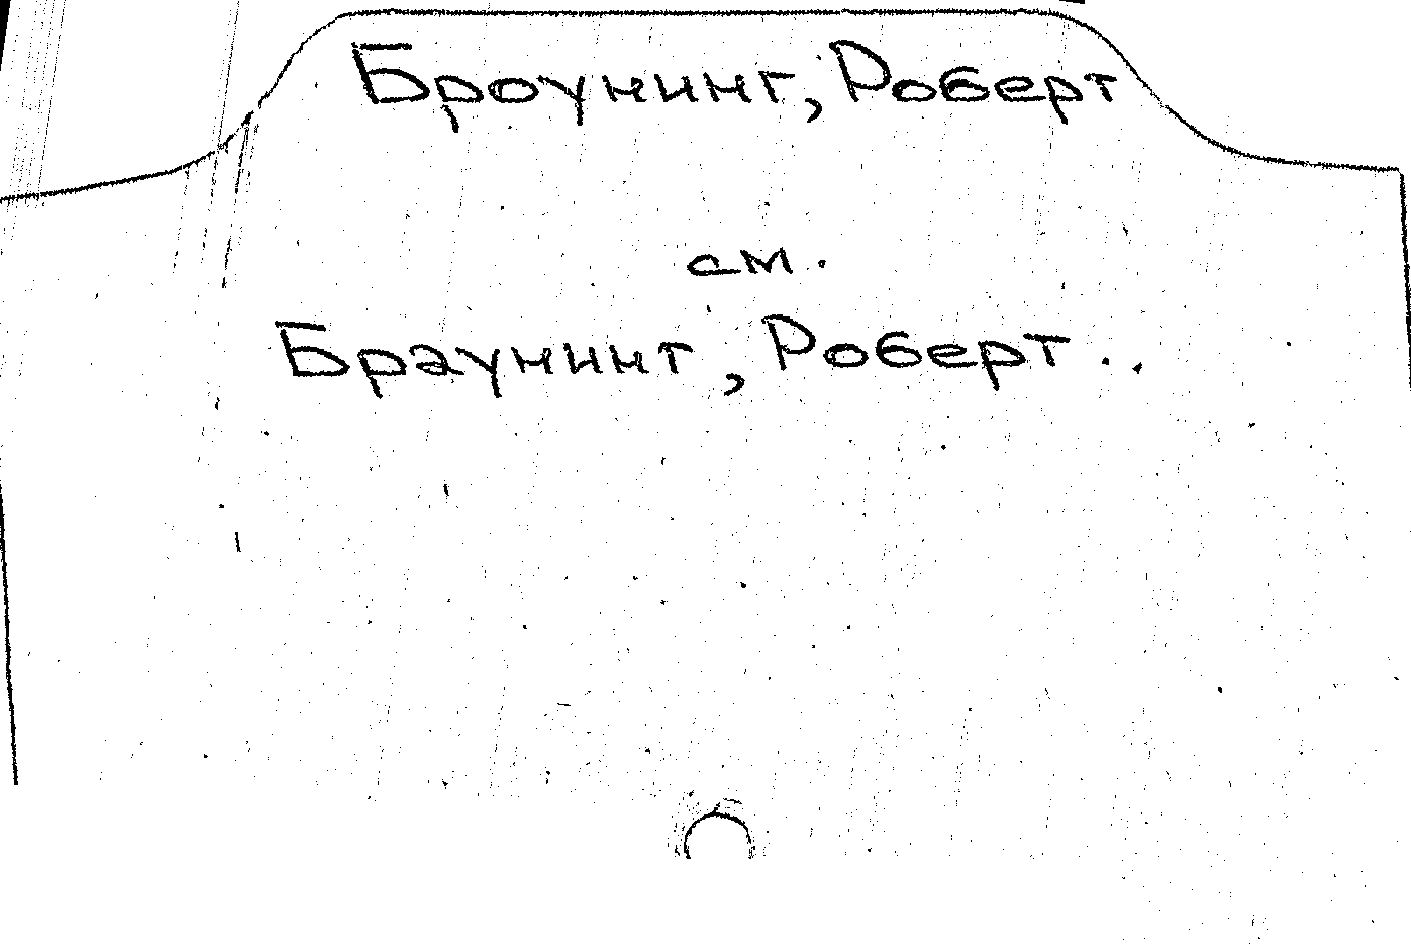 Броунинг, Роберт
см.
Браунинг, Роберт..